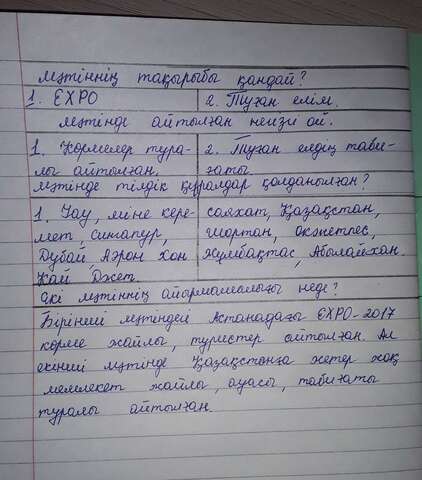 мәтіннің тақырыбы қандай?
1. EXPO 2. Туған елім.
мәтінде айтылған негізгі ой.
1. Көрмелер тура- 2. Туған елдің таби-
лы айтылған. ғаты.
мәтінде тілдік құралдар қолданылған?
1. Уау, міне кере- саяхат, Қазақстан,
мет, сингапур, Шортан, окжетпес,
Дубай Аэрон Хон Жұмбақтас, Абылайхан.
Кай Джет.
екі мәтіннің айырмашылығы неде?
Бірінші мәтіндей Астанадағы EXPO-2017
көрме жайлы, туристер айтылған. Ал
екінші мәтінде Қазақстанға жетер жоқ
мемлекет жайлы, ауасы, табиғаты
туралы айтылған.